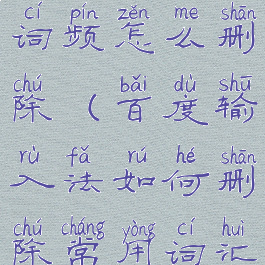 cí pín zěn me shān
词频怎么删
chú bǎi dù shū
除(百度输
rù fǎ rú hé shān
入法如何删
chú cháng yòng cí huì
除常用词汇